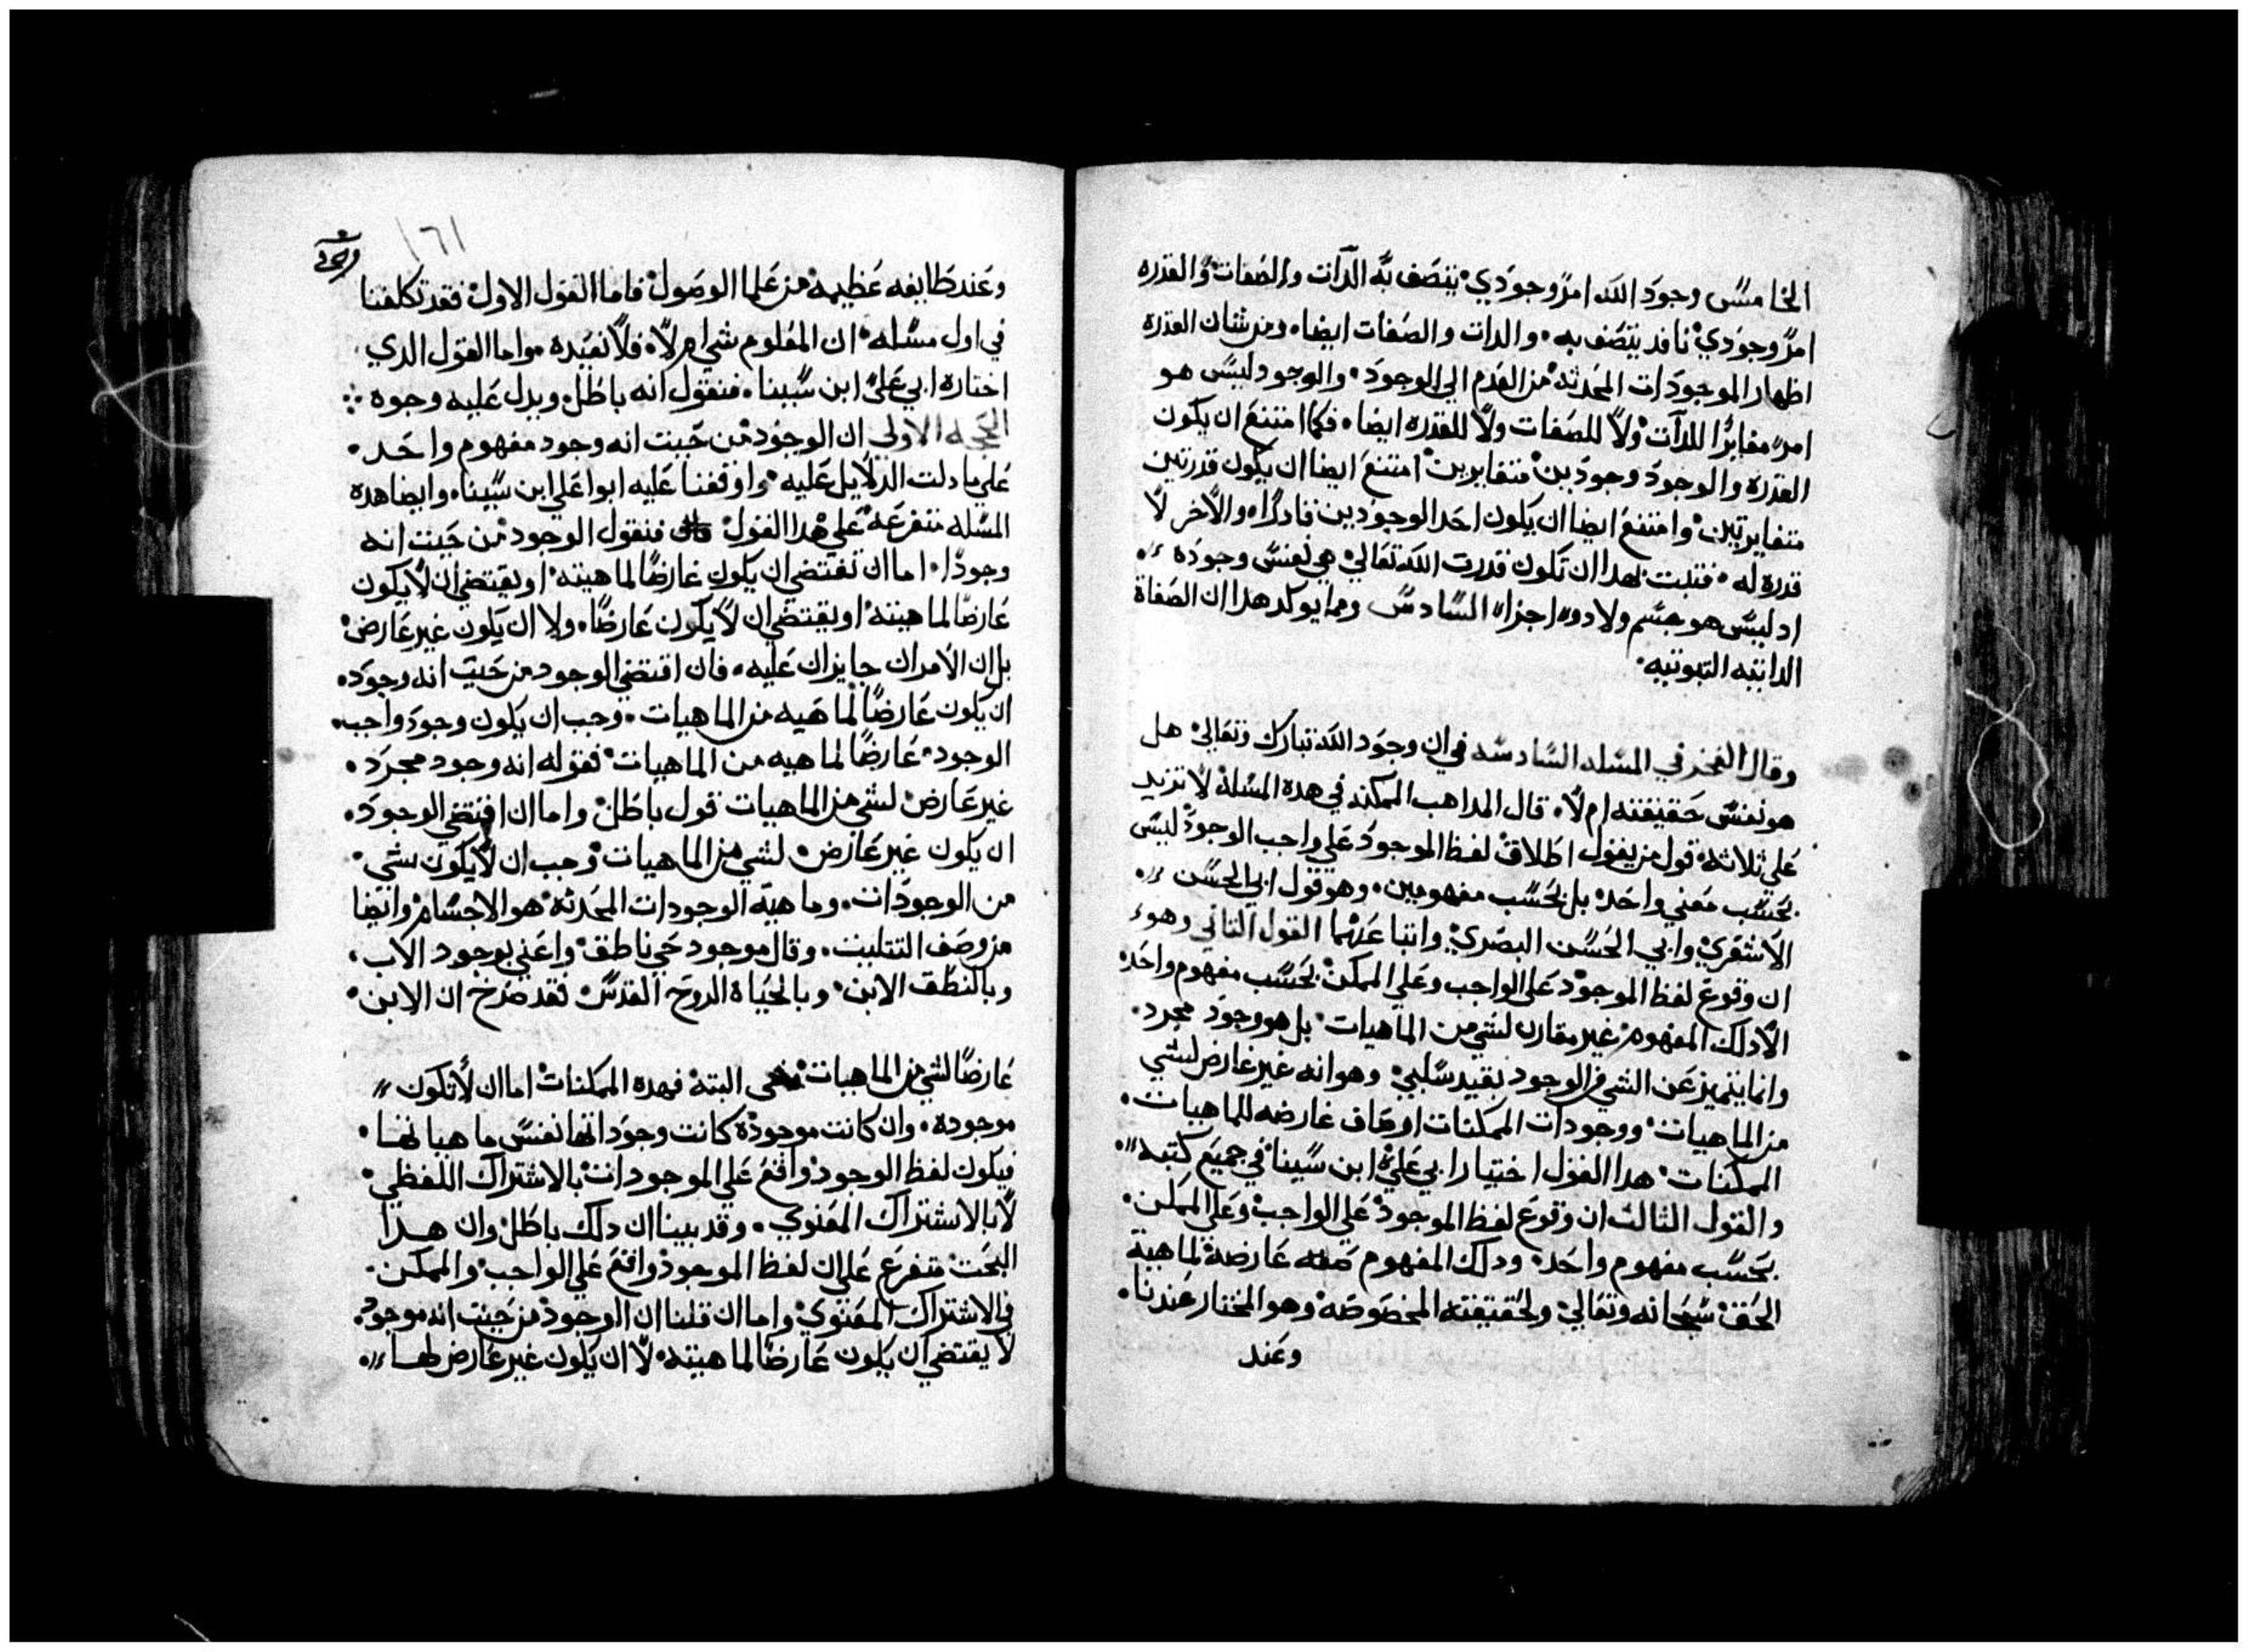 الخامس وجود الله امر وجودي يتصف به الدات والصفات والقدره
امر وجودي نافد يتصف به والدات والصفات ايضا ومن شان القدره
اظهار الموجودات المحدثه من العدم الي الوجود والوجود ليس هو
امر مغايرا للدات ولا للصفات ولا للقدره ايضا فكما امتنع ان يكون
القدره والوجود وجودين متغايرين امتنع ايضا ان يكون قدرتين
متغايرتين وامتنع ايضا ان يكون احد الوجودين قادرا والاخر لا
قدره له فتبت بهدا ان تكون قدرت الله تعالي هي نفس وجوده
اد ليس هو جسم ولا دو اجزا السادس ومما يوكد هدا ان الصفاة
الداتيه التبوتيه
وقال الفخر في المسله السادسه في ان وجود الله تبارك وتعالي هل
هو نفس حقيقته ام لا قال المداهب الممكنه في هده المسله لا تزيد
علي ثلاثه قول من يقول اطلاق لفظ الموجود علي واجب الوجود ليس
بحسب معني واحد بل بحسب مفهومين وهو قول ابي الحسن
الاشعري وابي الحسن البصري واتباعهما القول التاني وهو
ان وقوع لفظ الموجود علي الواجب وعلي الممكن بحسب مفهوم واحد
الا دلك المفهوم غير مقارن لشي من الماهيات بل هو وجود مجرد
وانما يتميز عن الشي في الوجود بقيد سلبي وهو انه غير عارض لشي
من الماهيات ووجودات الممكنات اوصاف عارضه للماهيات
الممكنات هدا القول اختيار ابي علي ابن سينا في جميع كتبه
والقول التالت ان وقوع لفظ الموجود علي الواجب وعلي الممكن
بحسب مفهوم واحد ودلك المفهوم صفه عارضة لماهية
الحق سبحانه وتعالي ولحقيقته المخصوصه وهو المختار عندنا
وعند
١٦١
وعند طايفه عظيمه من علما الوصول فاما القول الاول فقد تكلمنا
في اول مسله ان المعلوم شي ام لا فلا نعيده واما القول الدي
اختاره ابي علي ابن سينا فنقول انه باطل ويدل عليه وجوه
الحجه الاولي ان الوجود من حيت انه وجود مفهوم واحد
علي ما دلت الدلايل عليه واوقفنا عليه ابوا علي ابن سينا وايضا هده
المسله متفرعه علي هدا القول فنقول الوجود من حيت انه
وجودا اما ان تقتضي ان يكون عارضا لماهيته او يقتضي ان لا يكون
عارضا لماهيته او يقتضي ان لا يكون عارضا ولا ان يكون غير عارض
بل ان الامران جايزان عليه فان اقتضي الوجود من حيت انه وجود
ان يكون عارضا لماهيه من الماهيات وجب ان يكون وجود واجب
الوجود عارضا لماهيه من الماهيات فقوله انه وجود مجرد
غير عارض لشي من الماهيات قول باطل واما ان اقتضي الوجود
ان يكون غير عارض لشي من الماهيات وجب ان لا يكون شي
من الوجودات وماهية الوجودات المحدثه هو الاجسام وايضا
من وصف التتليت وقال موجود حي ناطق واعني بوجود الاب
وبالنطق الابن وبالحياة الروح القدس فقد صرح ان الابن
عارضا لشي من الماهيات البته فهده الممكنات اما ان لا تكون
موجوده وان كانت موجوده كانت وجوداتها نفس ماهياتها
فيكون لفظ الوجود واقع علي الموجودات بالاشتراك اللفظي
لا بالاشتراك المعنوي وقد بينا ان دلك باطل وان هدا
البحت متفرع علي ان لفظ الموجود واقع علي الواجب والممكن
في الاشتراك المعنوي واما ان قلنا ان الوجود من حيت انه موجود
لا يقتضي ان يكون عارضا لماهيته لا ان يكون غير عارض لها